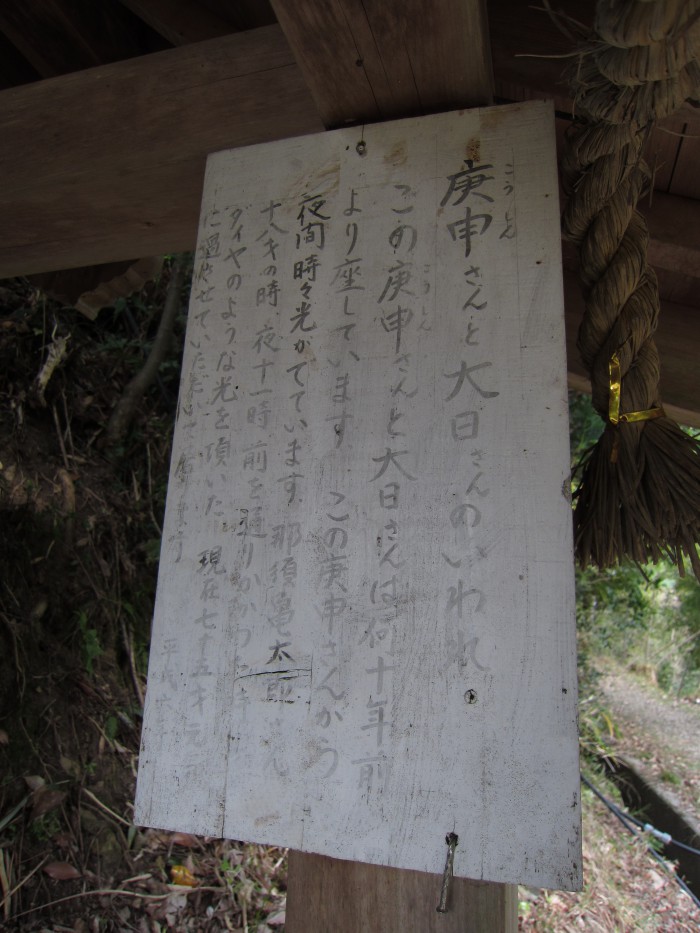 庚申さんと大日さんのいわれ
こうしん
この庚申さんと大日さんは何十年前
こうしん
より座しています この庚申さんから
夜間時々光がでています。那須亀太郎さん
十八才の時、夜十一時、前を通りかかわた
ダイヤのような光を頂いた。現在七十五才元気
に過させていただいて居ます
平成